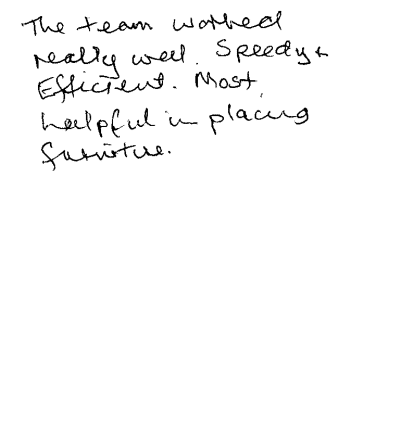 The team worked
really well. Speedy +
Efficient. Most
helpful in placing
furniture.